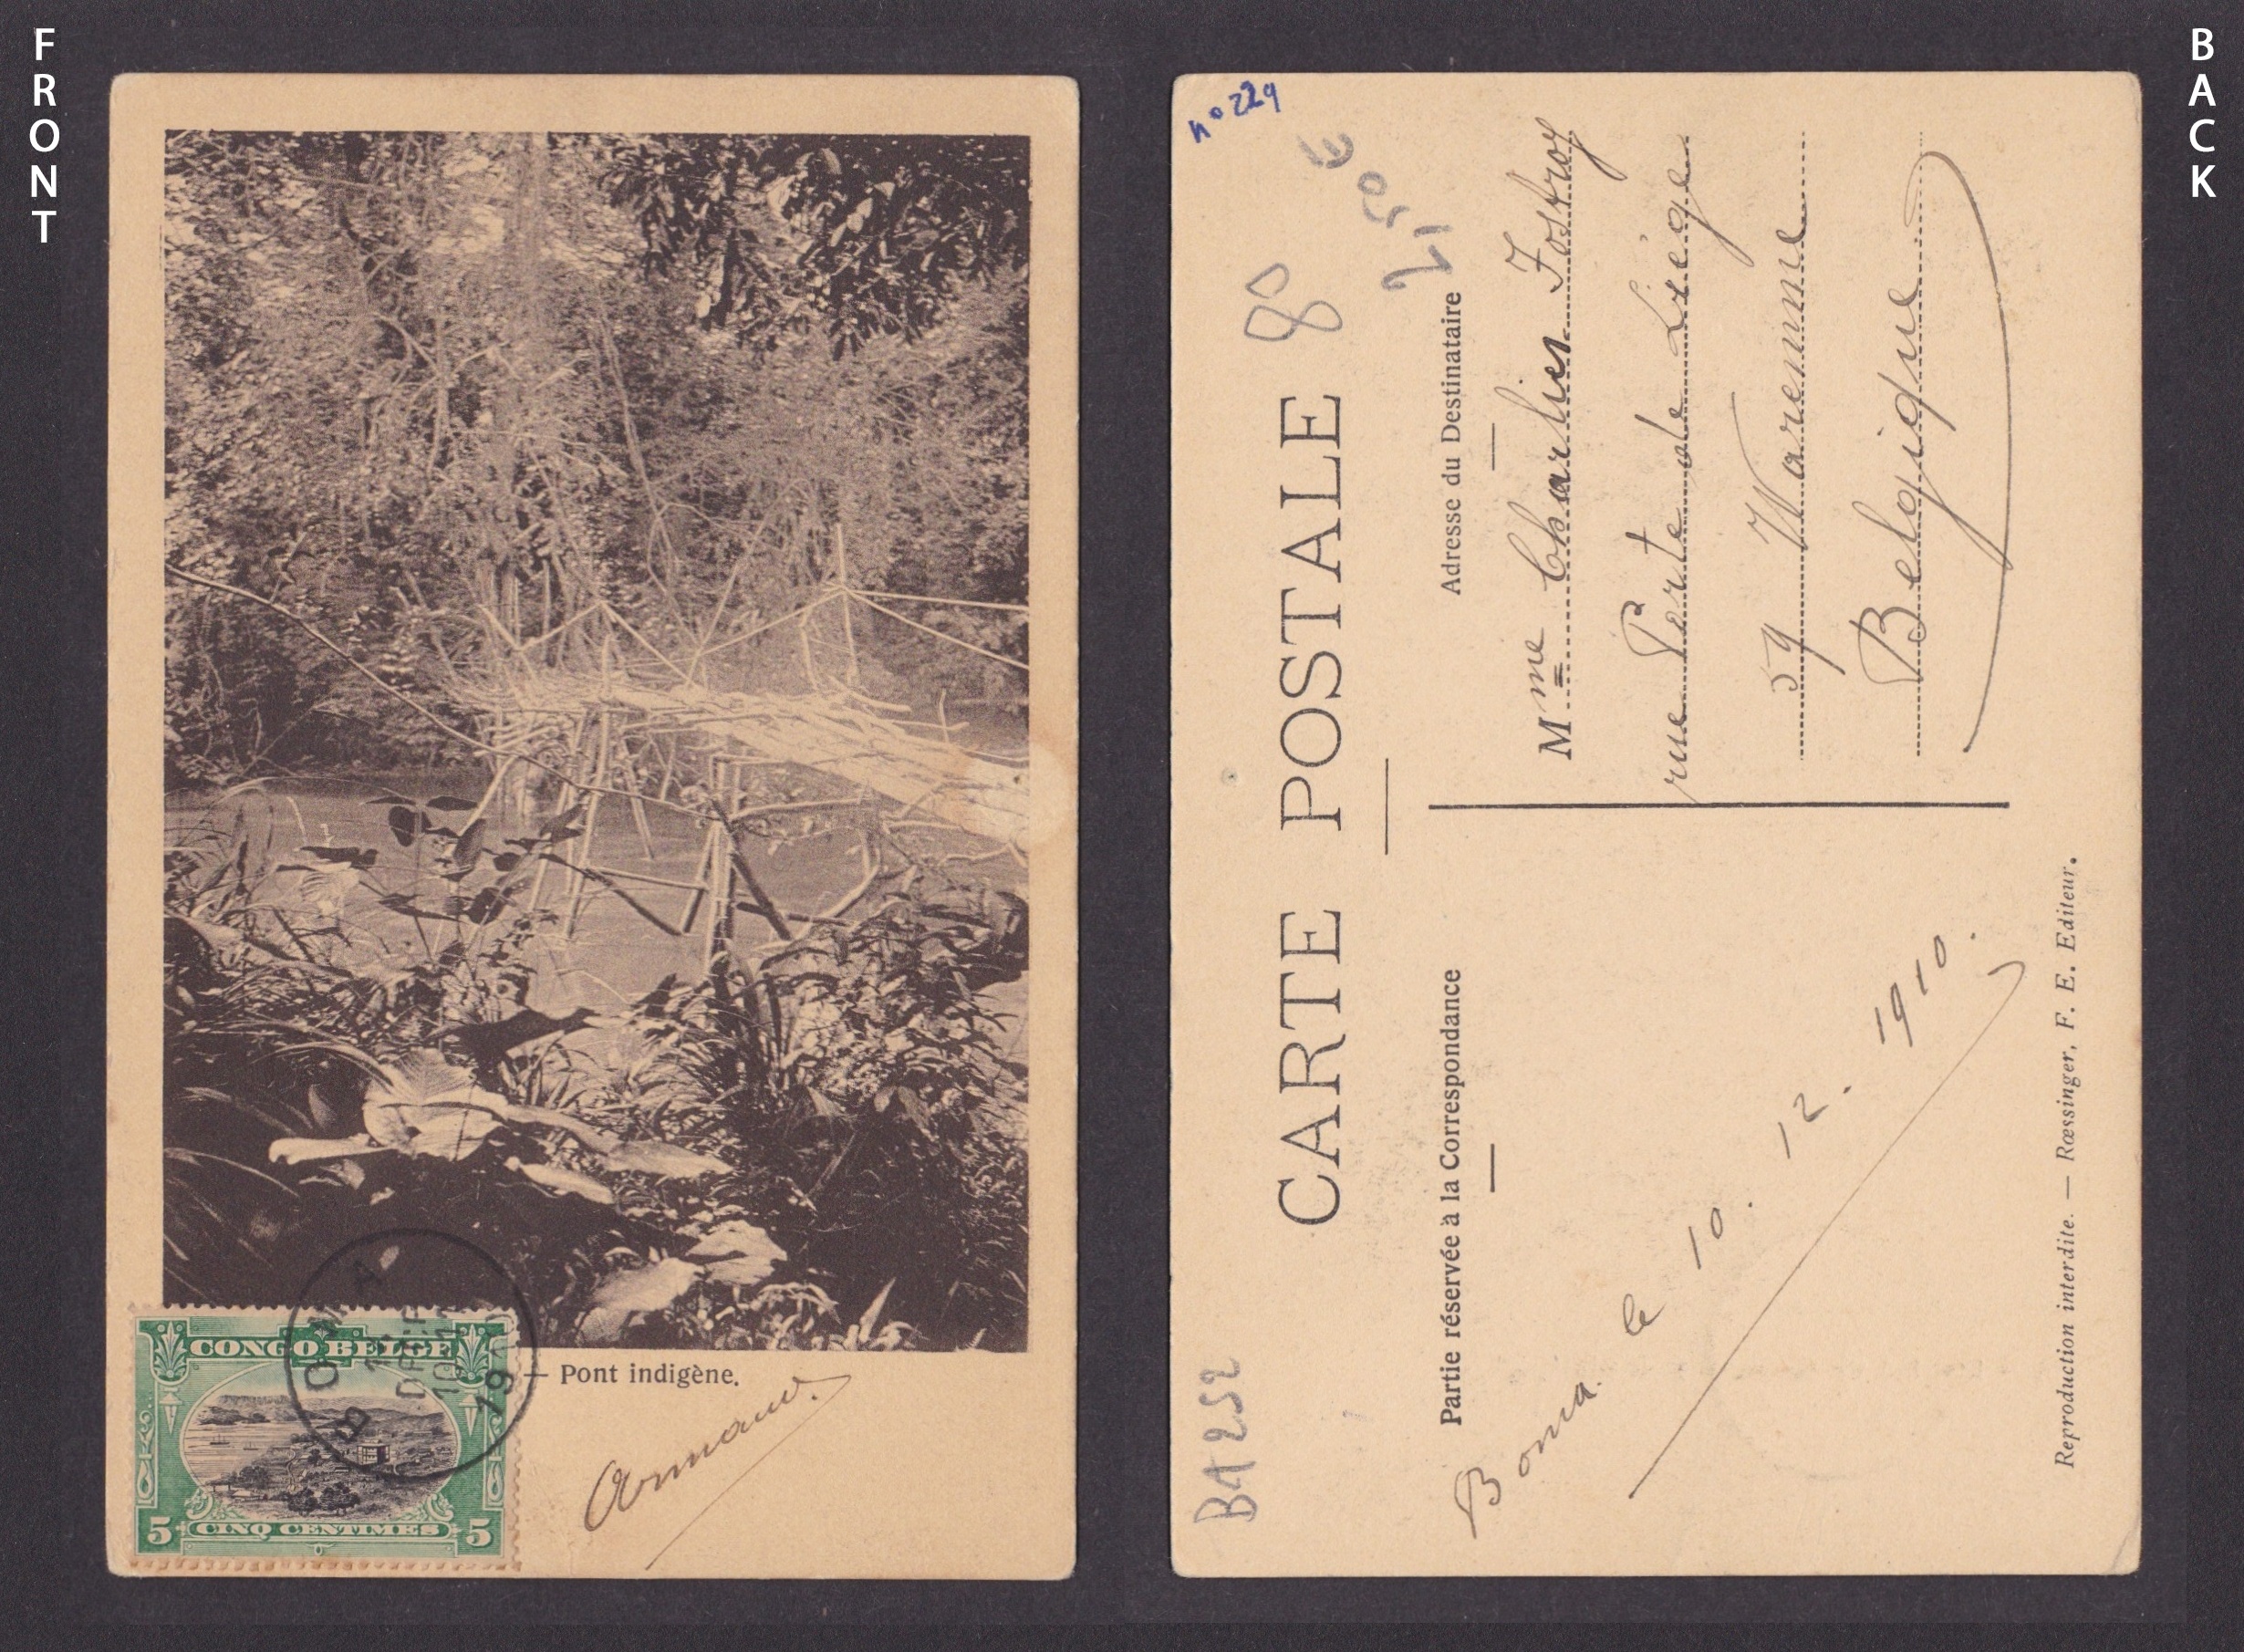 FRONT
CONGO BELGE
5 CINQ CENTIMES 5
BOMA
— Pont indigène.
Armand.
BACK
no 229
80
B1252
CARTE POSTALE
Partie réservée à la Correspondance
Boma. le 10. 12. 1910.
Adresse du Destinataire
Mme Charlier Fostroy
rue Porte de Liége
59 Waremme
Belgique
Reproduction interdite. — Rœssinger, F. E. Editeur.